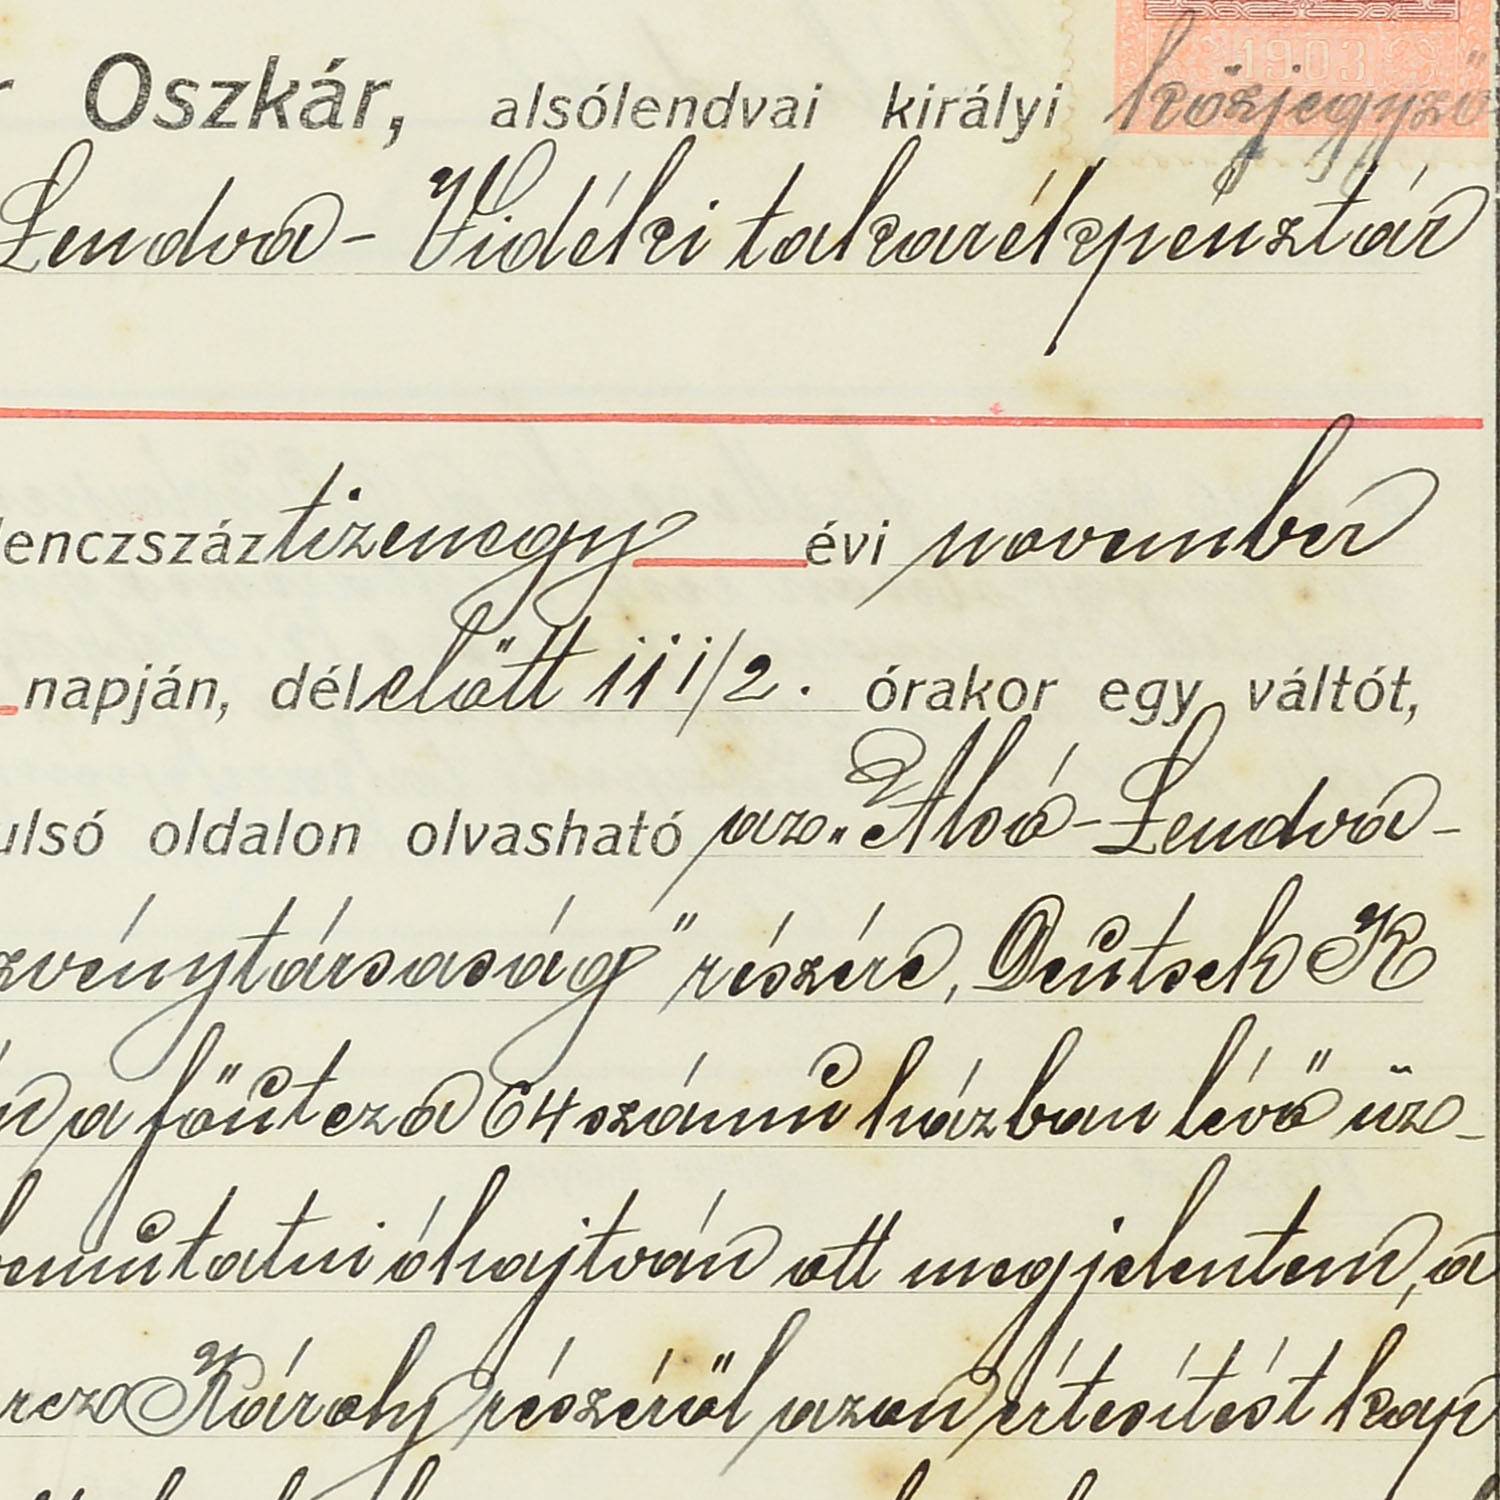 Oszkár, alsólendvai királyi közjegyző
1903
Lendva-Vidéki takarékpénztár
lenczszáztizenegy évi november
napján, délelőtt 11 1/2. órakor egy váltót,
ulsó oldalon olvasható az „Alsó-Lendva-
zvénytársaság" részére, Deutsch K
a főutcza 64 számu házban lévő üz-
bemutatni óhajtván ott megjelentem, a
Károly részéről azon értesítést kap